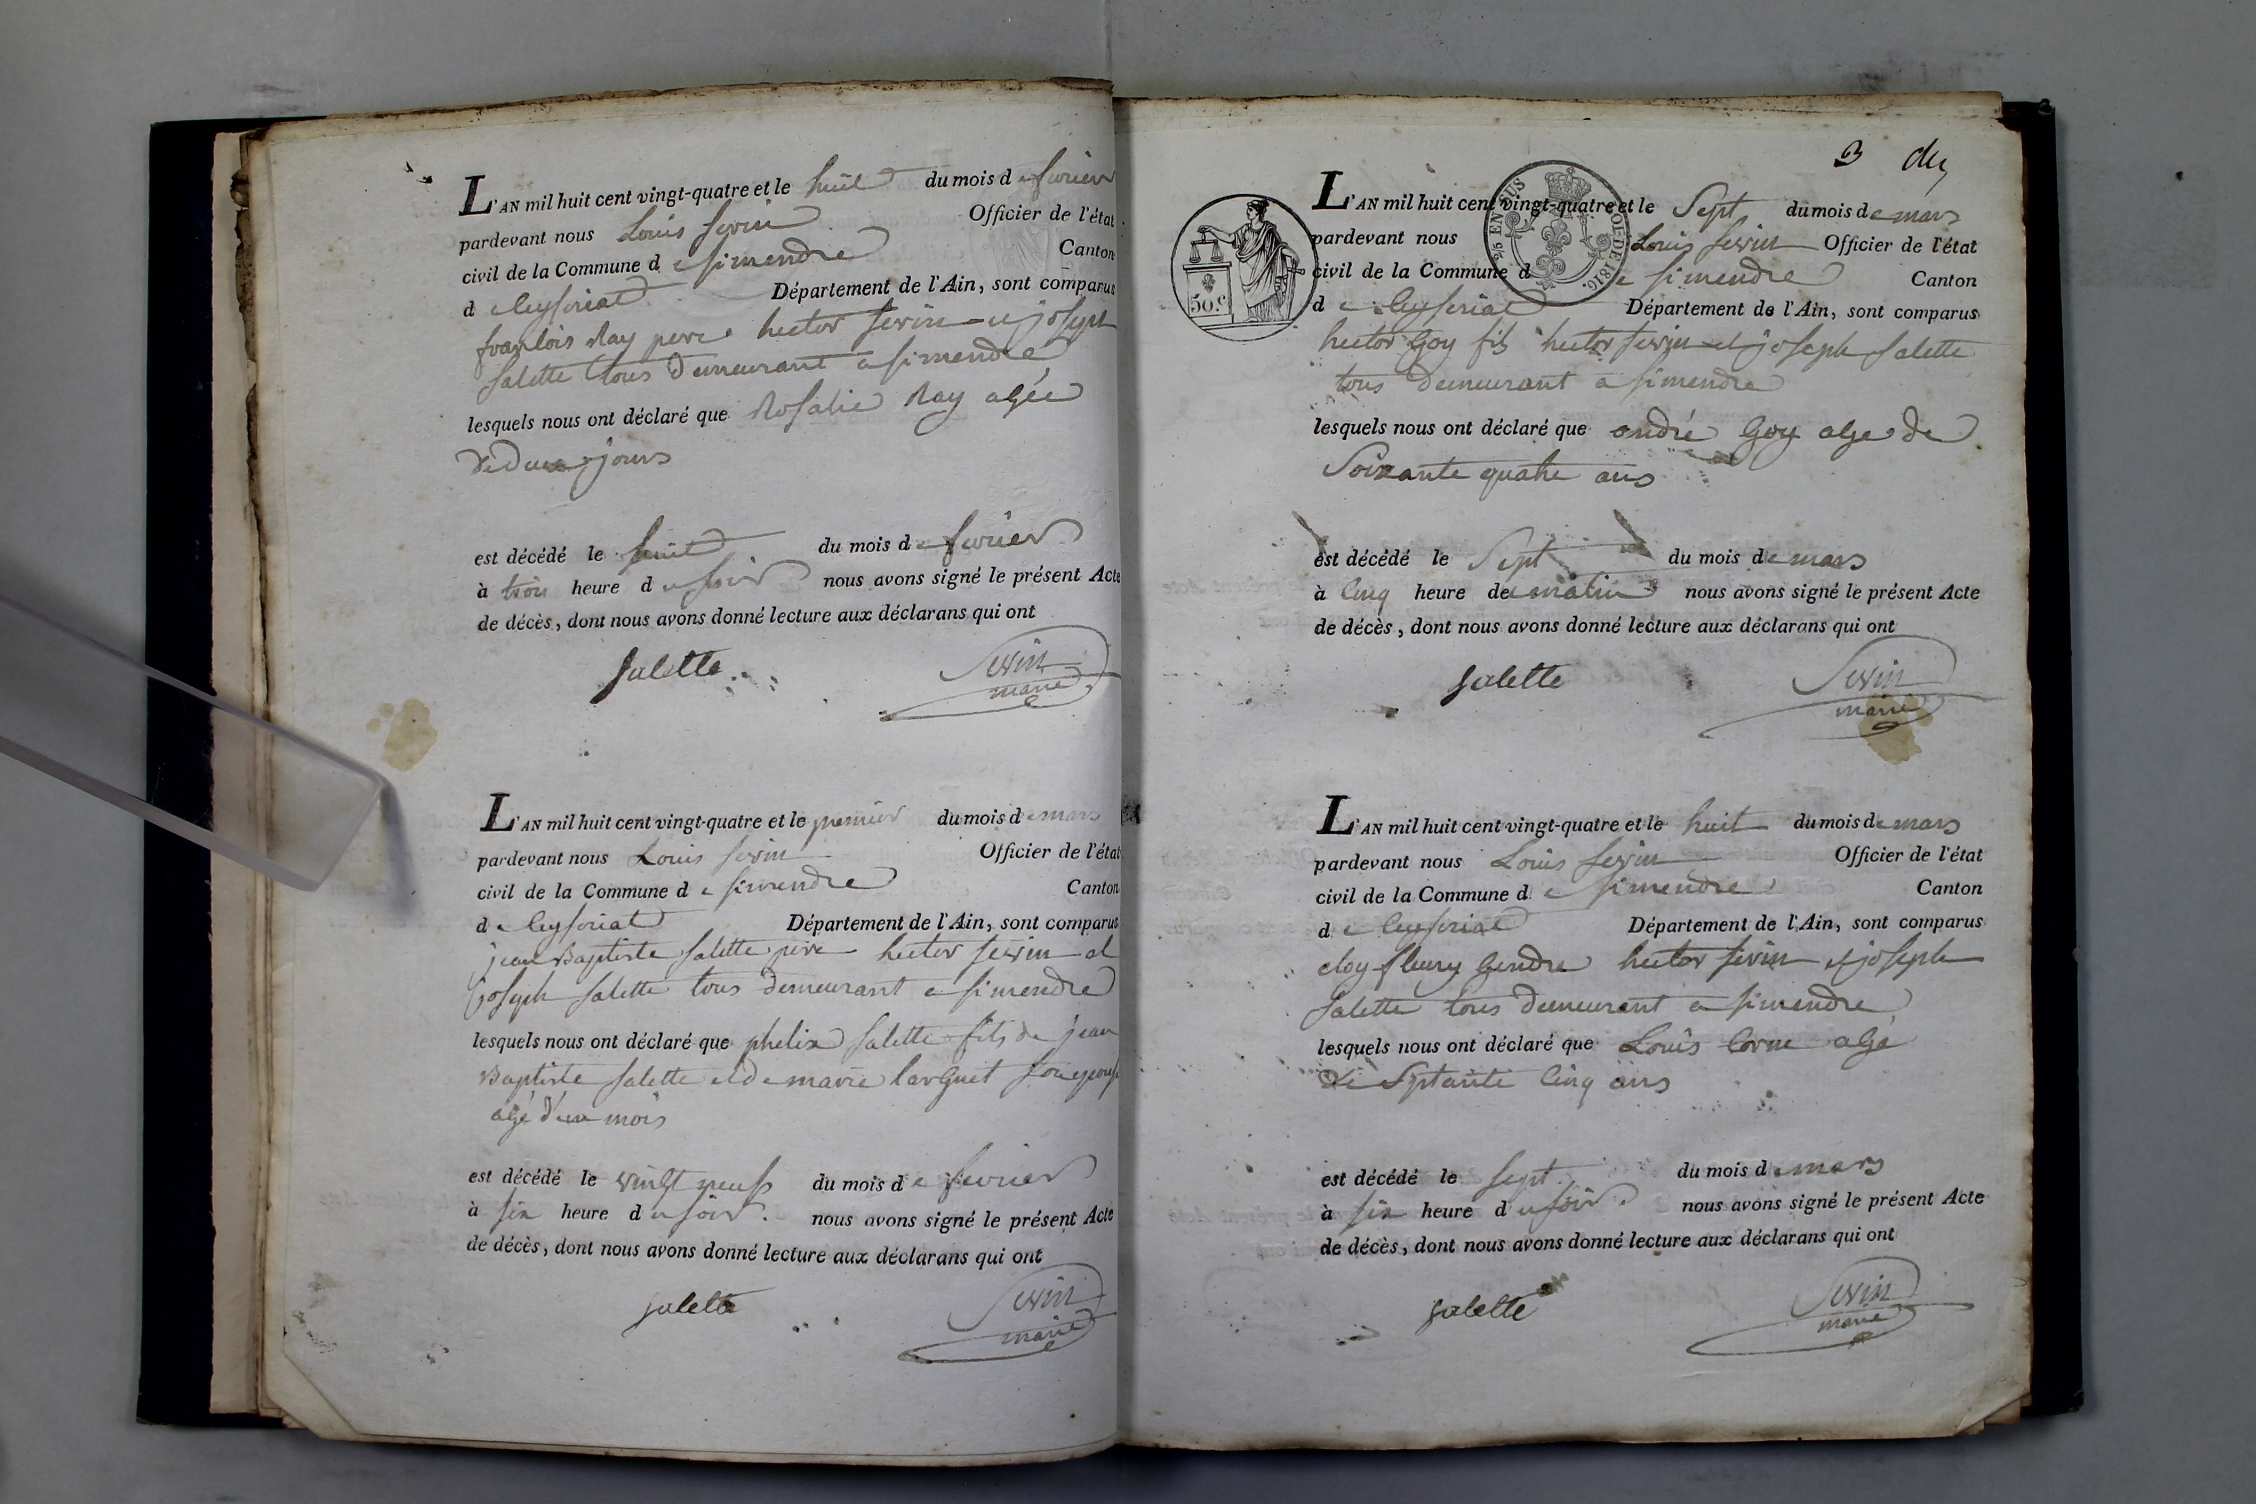 L'AN mil huit cent vingt-quatre et le huit du mois de fevrier
pardevant nous Louis Sevin Officier de l'état
civil de la Commune de Simendre Canton
de Ceyseriat Département de l'Ain, sont comparus
françois Ray pere hector Sevin et joseph
Salette tous demeurant a Simendre
lesquels nous ont déclaré que Rosalie Ray agée
de deux jours
est décédé le huit du mois de fevrier
à trois heure du soir nous avons signé le présent Acte
de décès, dont nous avons donné lecture aux déclarans qui ont
Salette Sevin
maire
L'AN mil huit cent vingt-quatre et le premier du mois de mars
pardevant nous Louis Sevin Officier de l'état
civil de la Commune de Simendre Canton
de Ceyseriat Département de l'Ain, sont comparus
jean Baptiste Salette pere hector Sevin et
joseph Salette tous demeurant a Simendre
lesquels nous ont déclaré que phelix Salette fils de jean
Baptiste Salette et de marie larguet
agé d'un mois
est décédé le vingt neuf du mois de fevrier
à six heure du soir nous avons signé le présent Acte
de décès, dont nous avons donné lecture aux déclarans qui ont
Salette Sevin
maire
3
50 c.
EN SUS
LOI DE 1816.
L'AN mil huit cent vingt-quatre et le Sept du mois de mars
pardevant nous Louis Sevin Officier de l'état
civil de la Commune de Simendre Canton
de Ceyseriat Département de l'Ain, sont comparus
hector Goy fils hector Sevin et joseph Salette
tous demeurant a Simendre
lesquels nous ont déclaré que andré Goy age de
Soixante quatre ans
est décédé le Sept du mois de mars
à Cinq heure de matin nous avons signé le présent Acte
de décès, dont nous avons donné lecture aux déclarans qui ont
Salette Sevin
maire
L'AN mil huit cent vingt-quatre et le huit du mois de mars
pardevant nous Louis Sevin Officier de l'état
civil de la Commune de Simendre Canton
de Ceyseriat Département de l'Ain, sont comparus
eloy fleury Gendre hector Sevin et joseph
Salette tous demeurant a Simendre
lesquels nous ont déclaré que Louis Corne agé
de Septante Cinq ans
est décédé le Sept du mois de mars
à Six heure du soir nous avons signé le présent Acte
de décès, dont nous avons donné lecture aux déclarans qui ont
Salette Sevin
maire